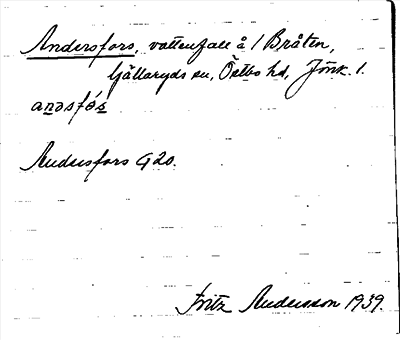 Andersfors, vattenfall å 1 Bråten,
Gällaryds sn, Östbo hd, Jönk. l.
anəsfós
Andersfors G20.
Fritz Andersson 1939.